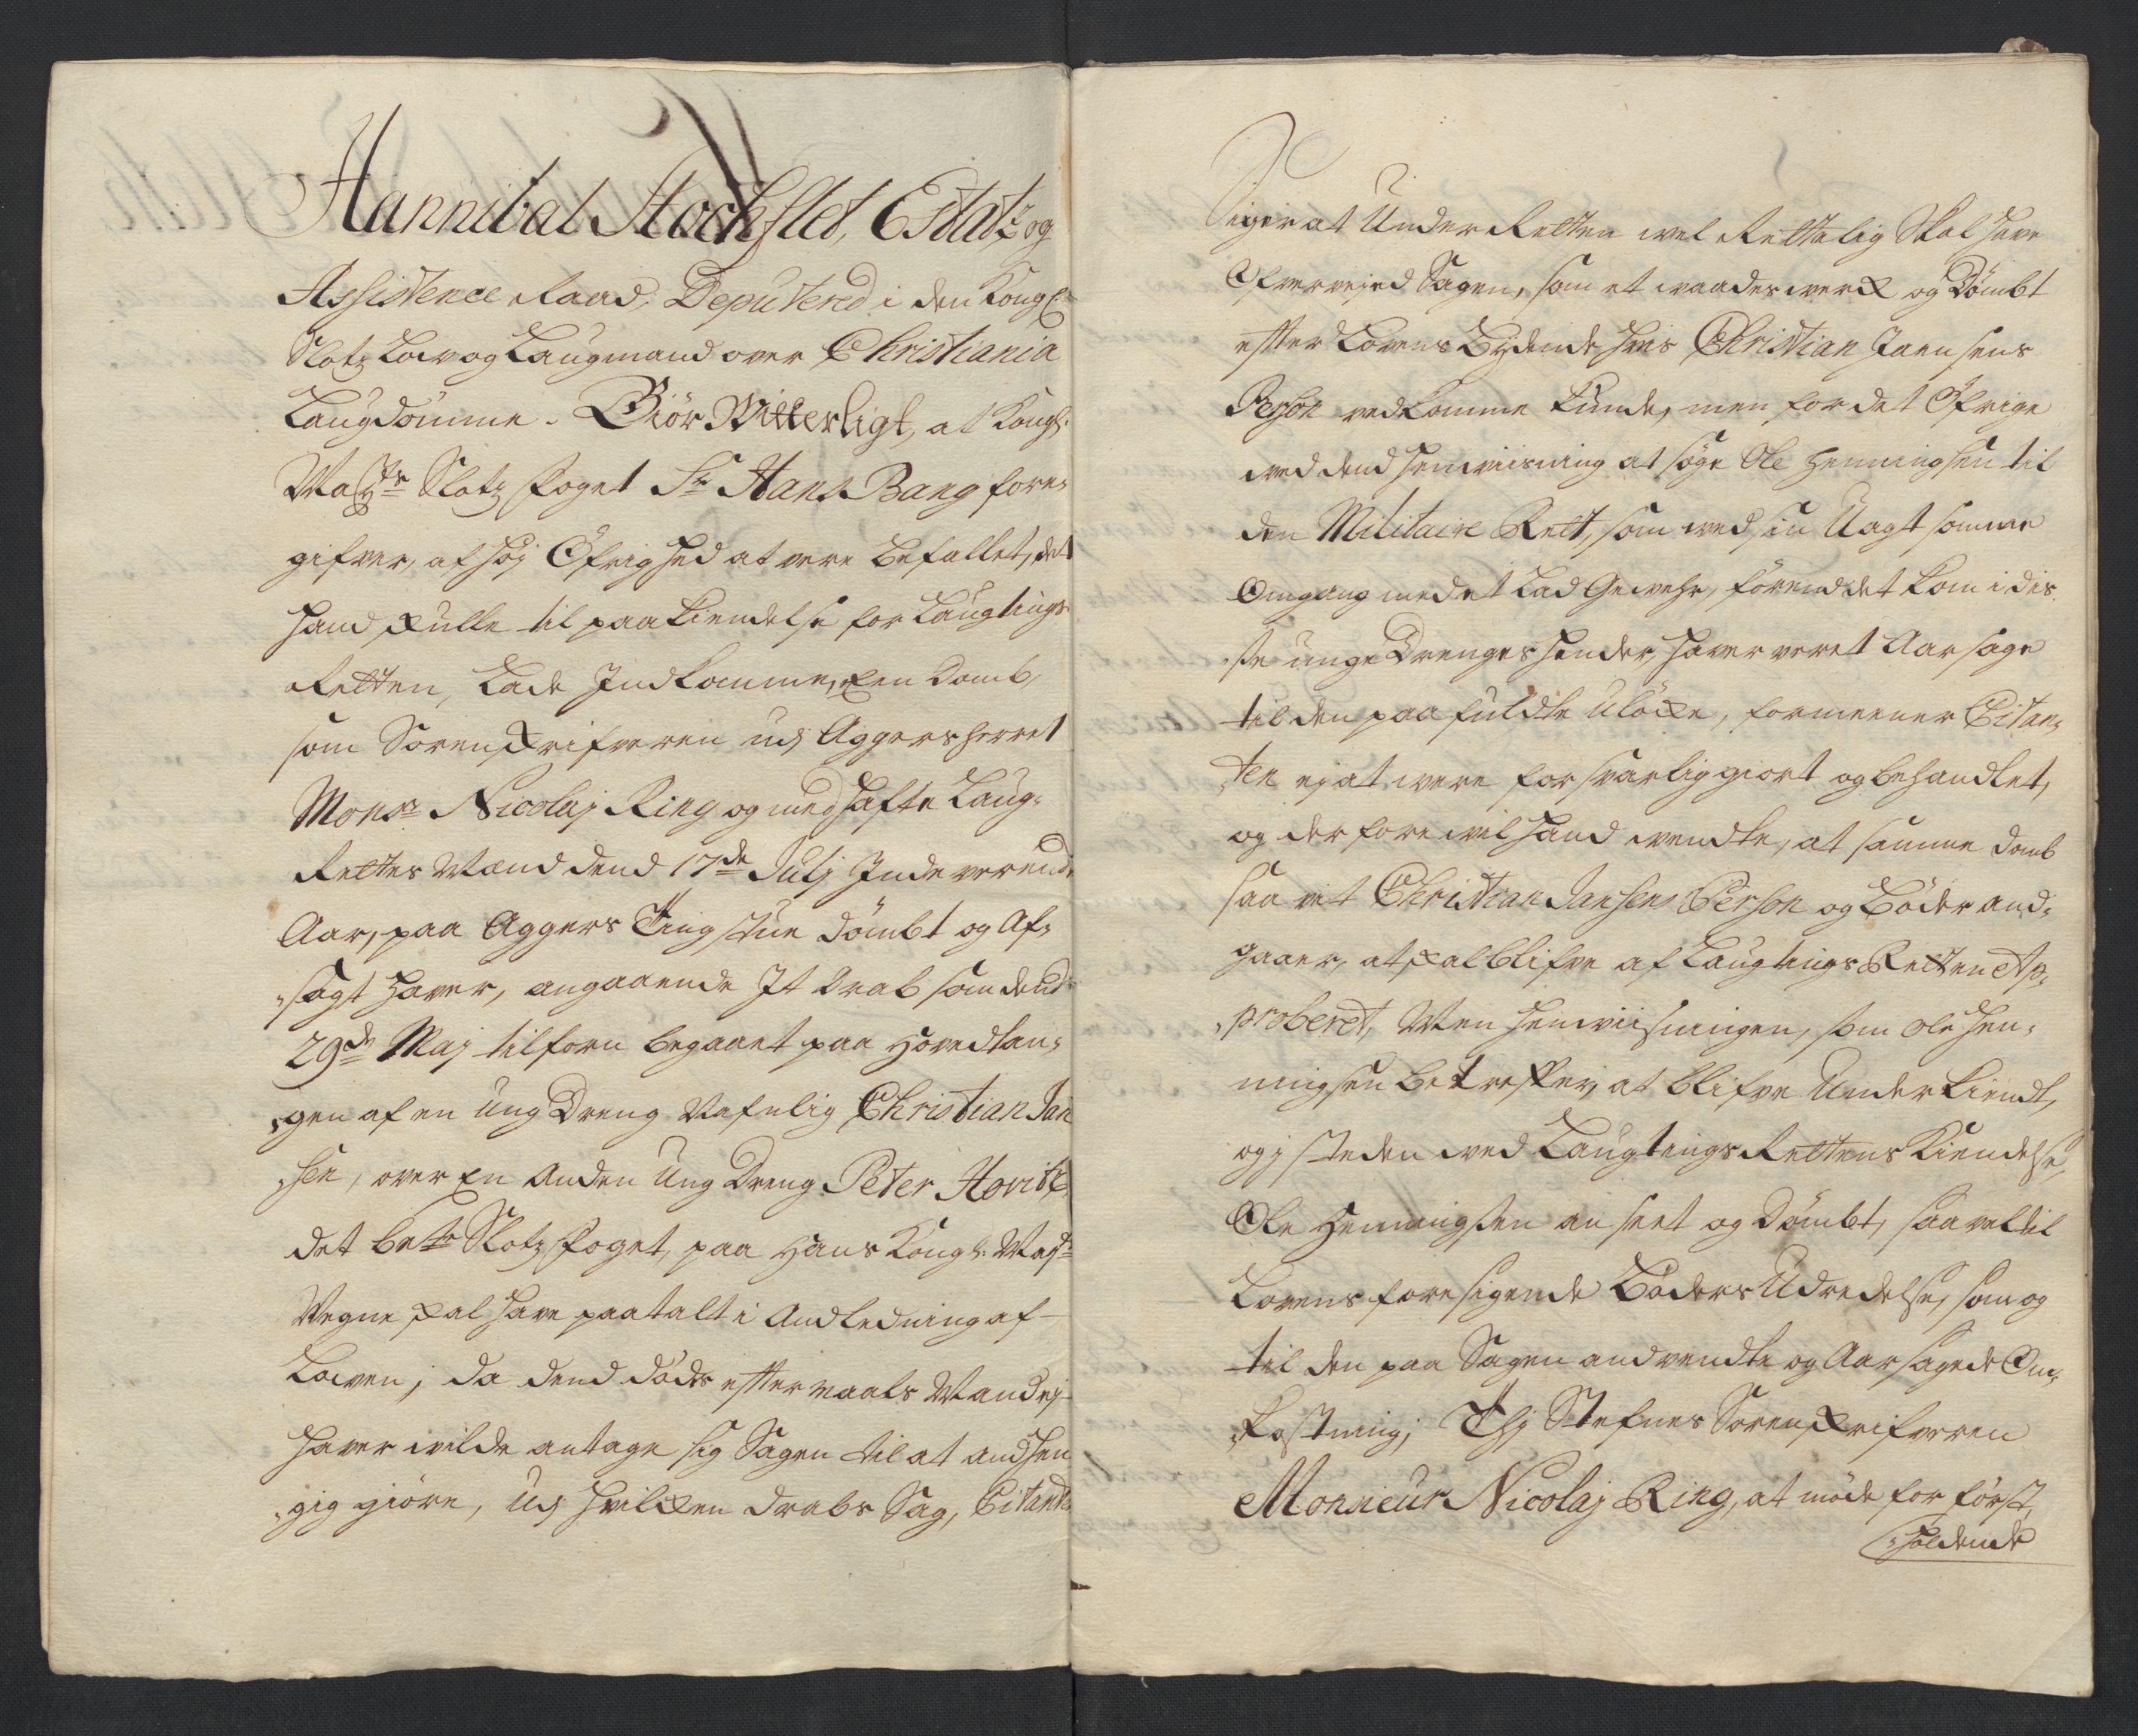 Hannibal Stockflet, Estatz og
Assistence Raad, Deputered i den Kongl:
Slotz Lov og Laugmand over Christiania
Laugdømme. Giør Witterligt, at Kongl:
Maÿts Slotz Foget Sr Hans Bang fore„
gifver, af høj Øfrighed at vere befallet, det
hand skulle til paakiendelse for Laugtings
Retten, Lade Indkomme, Een Domb,
som Sorenskrifveren udj Aggersherret
Monsr Nicolaj Ring og medhafte Laug„
Rettes Mænd dend 17de Julj Indeverende
Aar, paa Aggers Tingstue dømbt og Af„
„sagt haver, angaaende It Drab som dend
29de Maj tilforn begaaet paa Hovedtan„
„gen af en Ung Dreng Nafnlig Christian Jan
„sen, over En Anden Ung Dreng Peter Hovitz
det bete Slotz Foget, paa Hans Kongl: Mayts
Vegne skal have paatalt i Andledning af
Loven; da dend dødes eftermaals Mand ej
haver wilde antage sig Sagen til at andhen
„gig giøre, Udj hvilken Drabs Sag, Citanten
Siger at Under Retten wel Rettelig Skal have
Ofverveyed Sagen, som et waadeswerk og Dømbt
efter Lovens Bydende hvis Christian Jansens
Person vedkomme kunde, men for det Øfrige
wed dend henviisning at søge Ole Henningsen til
den Militaire Rett, som wed sin Uagtsomme
Omgang med et Lad Gewehr, førend det kom i dis
„se unge Drenges hender, haver veret Aarsage
til den paafuldte Uløcke, formeener Citan„
„ten ej at were forsvarlig giort og behandlet,
og derfore wil hand wendte, at samme Domb
saa vit Christian Jansens Person og Bøder and„
gaaer, at skal blifve af Laugtings Retten Ap„
„proberet, Men henviisningen, som Ole Hen„
ningsen betreffer, at blifve Underkiendt,
og j steden wed Laugtings Rettens Kiendelse,
Ole Henningsen anseet og Dømbt, saavel til
Lovens foresigende Bøders Udredelse, som og
til den paa Sagen andvendte og Aarsagede Om„
„kostning; Thj Stefnes Sorenskrifveren
Monsieur Nicolaj Ring, at møde for først
„holdende